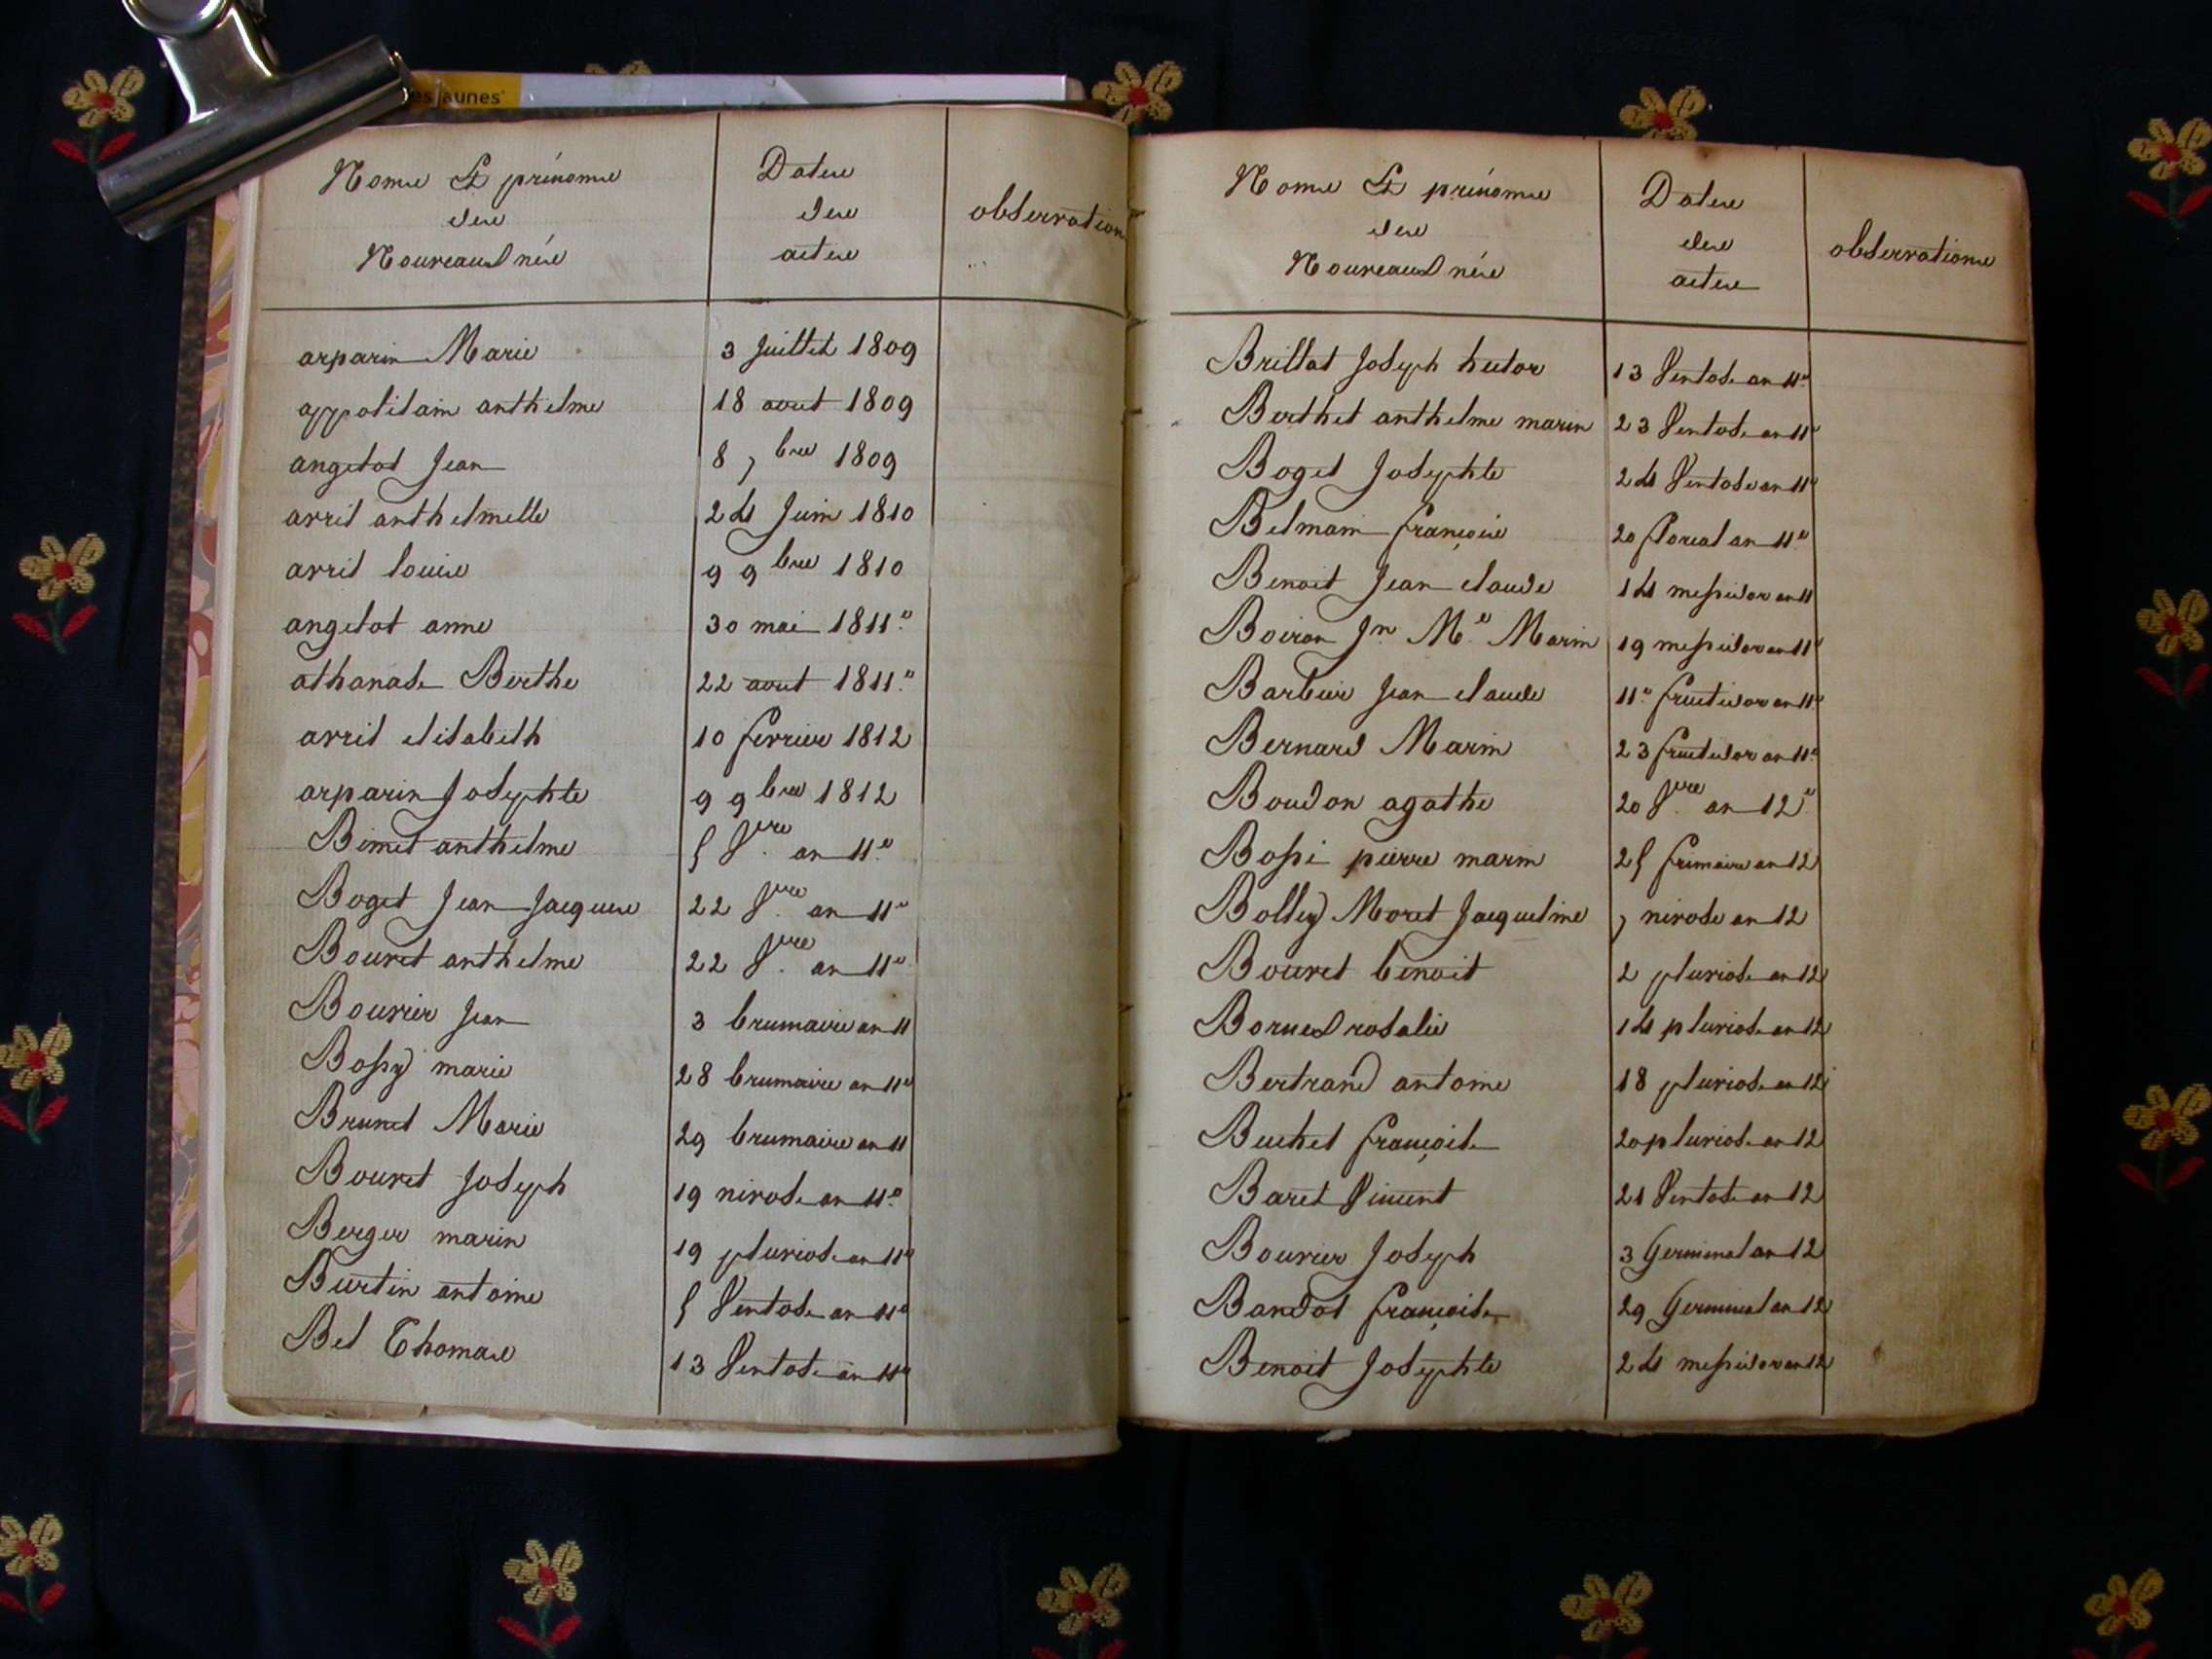 es jaunes
Noms Et prénoms
des
Nouveaux nés
Dates
des
actes
observation
arparin Marie 3 Juillet 1809
appolilain anthelme 18 aout 1809
angelot Jean 8 7bre 1809
arril anthelmette 24 Juin 1810
arril louise 9 9bre 1810
angelot anne 30 mai 1811.e
athanase Berthe 22 aout 1811.e
arril elisabeth 10 fevrier 1812
arparin Josephte 9 9bre 1812
Bimet anthelme 5 V.re an 11.e
Boget Jean Jacques 22 V.re an 11.e
Bouvet anthelme 22 V.re an 11.e
Bouvier Jean 3 brumaire an 11
Bossy marie 28 brumaire an 11e
Brunet Marie 29 brumaire an 11
Bouvet Joseph 19 nivose an 11.e
Berger marin 19 pluviose an 11e
Burtin antoine 5 Ventose an 11e
Bel Thomas 13 Ventose an 11e
Noms Et prénoms
des
Nouveaux nés
Dates
des
actes
observations
Brillat Joseph hector 13 Ventose an 11.e
Berthet anthelme marin 23 Ventose an 11e
Boget Josephte 24 Ventose an 11e
Belmain françois 20 floreal an 11.e
Benoit Jean claude 14 messidor an 11
Boiron Jn M.e Marin 19 messidor an 11e
Barbier Jean claude 11.e fructidor an 11e
Bernard Marin 23 fructidor an 11.e
Boudon agathe 20 V.re an 12.e
Bossi pierre marin 25 frimaire an 12
Bolley Moret Jacqueline 7 nivose an 12
Bouvet benoit 2 pluviose an 12
Bornex rosalie 14 pluviose an 12
Bertrand antoine 18 pluviose an 12
Buchet françoise 20 pluviose an 12
Baret Vincent 21 Ventose an 12
Bouvier Joseph 3 Germinal an 12
Bandot françoise 29 Germinal an 12
Benoit Josephte 24 messidor an 12